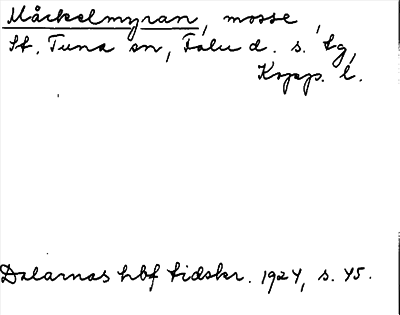 Mårkelmyran, mosse,
St. Tuna sn, Falu d. s. tg,
Kopp. l.
Dalarnas hbf tidskr. 1924, s. 45.